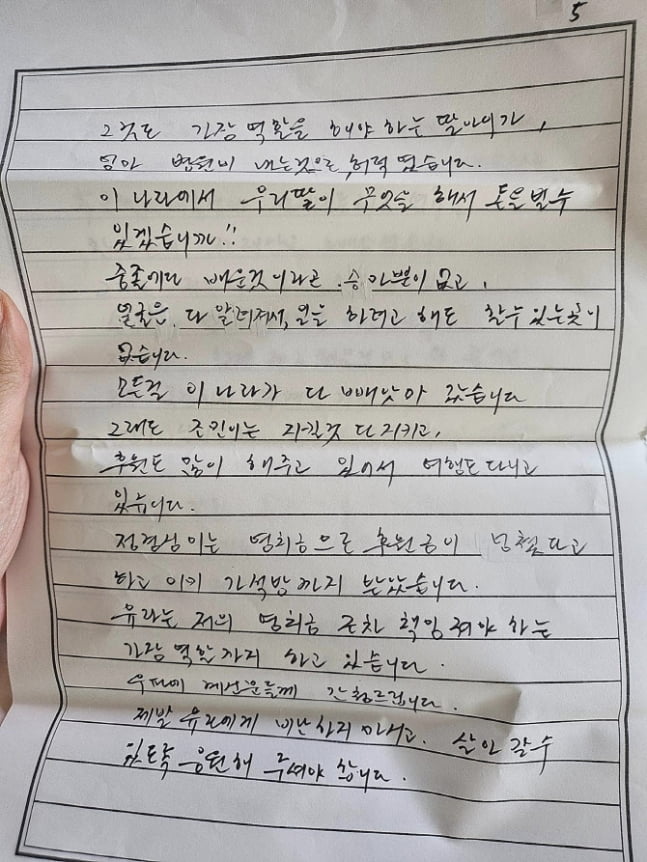 5
그것도 가장 역활을 해야 하는 딸아이가,
엄마 병원비 내는것으로, 허덕 였습니다.
이 나라에서 우리딸이 무엇을 해서 돈을 벌수
있겠습니까!!
중졸에다 배운것이라곤 승마뿐이 없고,
얼굴은 다 알려져서, 일을 하려고 해도 할수 있는곳이
없습니다.
모든걸 이 나라가 다 빼앗아 갔습니다
그래도 조민이는 지킬것 다 지키고,
후원도 많이 해주고 있어서 여행도 다니고
있습니다.
정경심이는 영치금으로 후원금이 넘쳤다고
하고 이미 가석방까지 받았습니다.
유라는 저의 영치금 조차 책임져야 하는
가장 역활까지 하고 있습니다.
우파에 계신분들께 간청드립니다.
제발 유라에게 비난하지 마시고. 살아 갈수
있도록 응원해 주셔야 합니다.